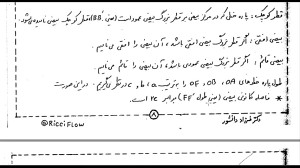 قطر کوچک: پاره خطی که در مرکز بیضی بر قطر بزرگ بیضی عمود است (یعنی 'BB)، قطر کوچک بیضی نامیده می‌شود.
بیضی افقی: اگر قطر بزرگ بیضی افقی باشد، آن بیضی را افقی می‌نامیم.
بیضی قائم: اگر قطر بزرگ بیضی عمودی باشد، آن بیضی را قائم می‌نامیم.
طول پاره خط‌های OA، OB، OF را به ترتیب a، b، c در نظر می‌گیریم. در این صورت
* فاصله کانونی بیضی (یعنی طول 'FF) برابر 2c است.
۸
@RicciFlow
دکتر فرزاد دانشور